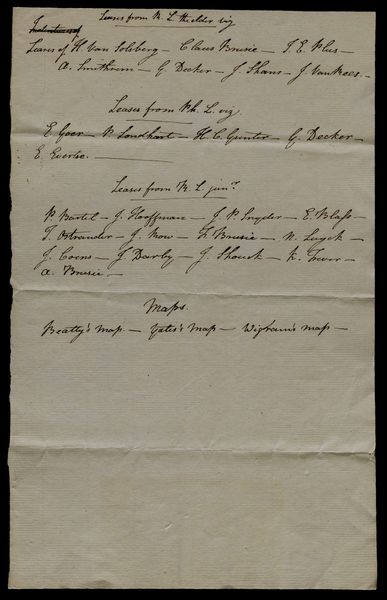 Leases from R. L. the elder viz
Leases of H Van Solsberg — Claus Brusie — T. E. Plus —
A. Smithrem — G Decker — J. Shans — J. Van Rees —
Leases from Ph. L. viz.
E. Goer — P. Londhart — H. C. Gunter — G. Decker —
E. Evertse. —
Leases from R. L. junr.
P. Bartel — J. Hooffman — J. P. Snyder — E. Blass —
T. Ostrander — J. Mow — F. Brusie — N. Luyck —
J. Coens — J. Darby — J. Shouck — K. Trever —
A. Brusie —
Maps.
Beatty's map. — Yates's map — Wigram's map —